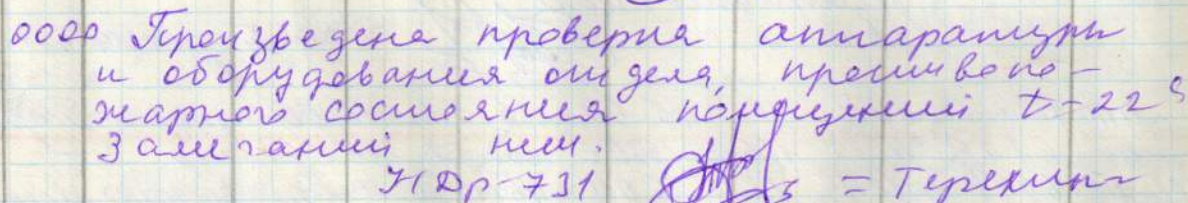 0000 Произведена проверка аппаратуры
и оборудования отдела, противопо-
жарного состояния помещений t-22°
Замечаний нет.
НДр-731 = Терехин